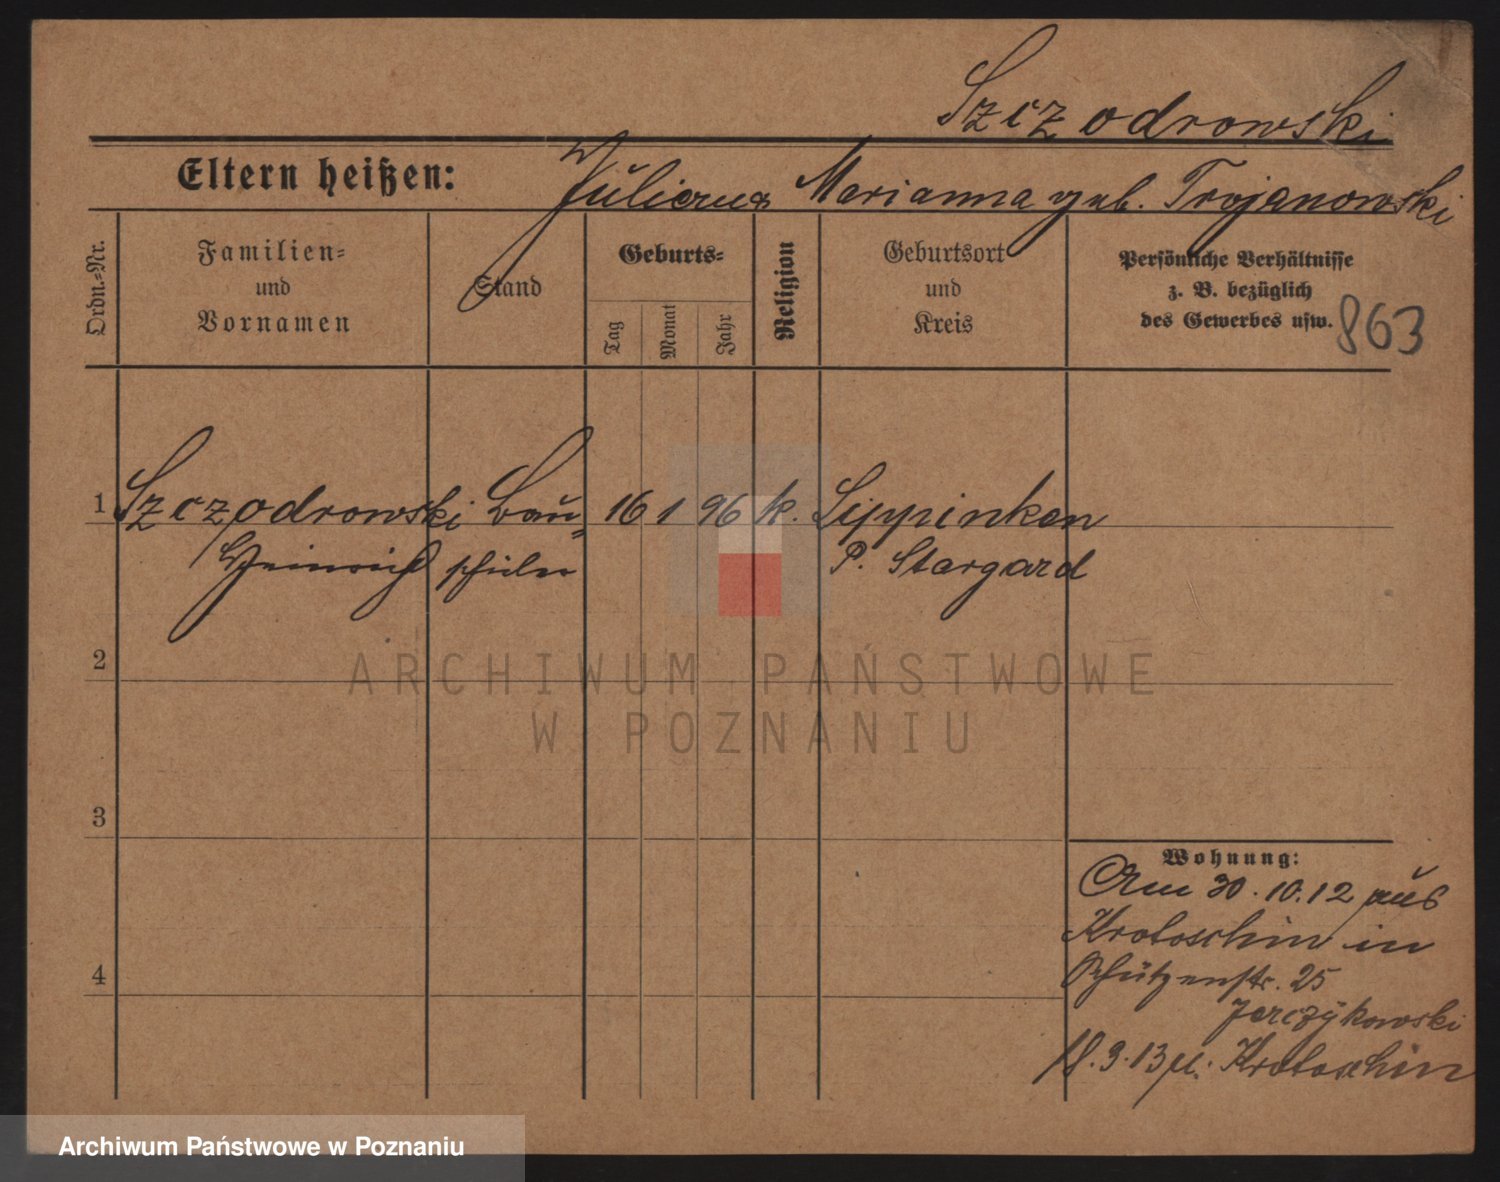 Szczodrowski
Eltern heißen: Julius Marianna geb. Trojanowski
Ordn.-Nr.
Familien-
und
Vornamen
Stand
Geburts-
Tag
Monat
Jahr
Religion
Geburtsort
und
Kreis
Persönliche Verhältnisse
z. B. bezüglich
des Gewerbes usw.
863
1 Szczodrowski Bau- 16 1 96 k. Lippinken
Heinrich schüler P. Stargard
2
ARCHIWUM PAŃSTWOWE
W POZNANIU
3
4
Wohnung:
Am 30.10.12 aus
Krotoschin in
Schützenstr. 25
Jerczykowski
18.3.13 n. Krotoschin
Archiwum Państwowe w Poznaniu